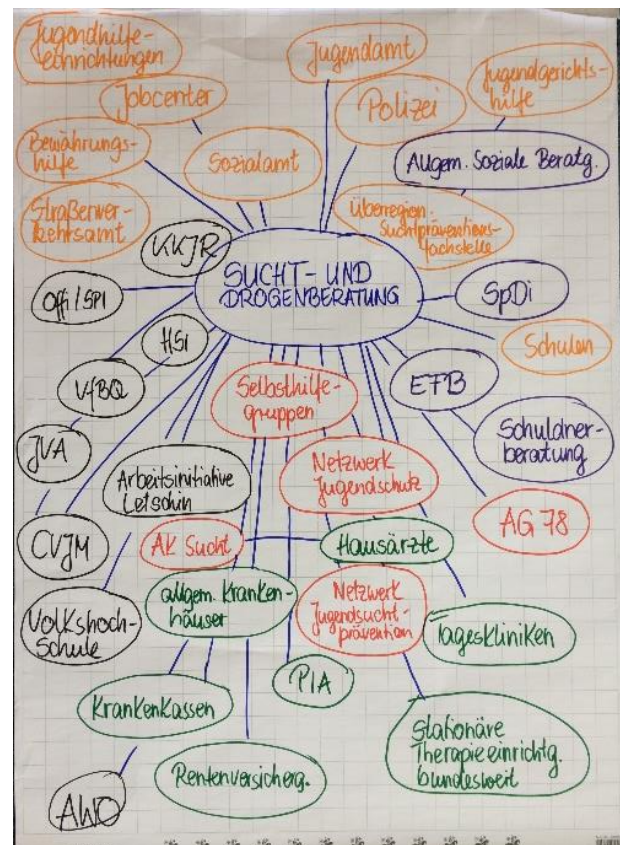 Jugendhilfe-
einrichtungen
Jugendamt
Jugendgerichts-
hilfe
Jobcenter
Polizei
Bewährungs-
hilfe
Sozialamt
Allgem. Soziale Beratg.
Straßenver-
kehrsamt
Überregion.
Suchtpräventions-
fachstelle
KKJR
SUCHT- UND
DROGENBERATUNG
SpDi
Offi/SPI
HSI
Schulen
VfBQ
Selbsthilfe-
gruppen
EFB
Schuldner-
beratung
JVA
Arbeitsinitiative
Letschin
Netzwerk
Jugendschutz
AG 78
CVJM
AK Sucht
Hausärzte
allgem. Kranken-
häuser
Netzwerk
Jugendsucht-
prävention
Volkshoch-
Schule
Tageskliniken
PIA
Krankenkassen
Stationäre
Therapieeinrichtg.
bundesweit
Rentenversicherg.
AWO